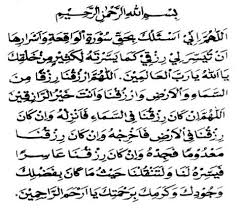 بسم الله الرحمن الرحيم
اللهم اني اسئلك بحق سورة الواقعة واسرارها
ان تيسر لي رزقي كما يسرته لكثير من خلقك
يا الله يا رب العالمين. اللهم ارزقنا رزقا من
السماء والارض وارزقنا وانت خير الرازقين
اللهم ان كان رزقنا في السماء فانزله وان كان
رزقنا في الارض فاخرجه وان كان رزقنا
معدوما فجده وان كان رزقنا عاسرا
فيسره لنا ولتنقلنا حيث ما كان بفضلك
وجودك وكرمك برحمتك يا ارحم الراحمين.